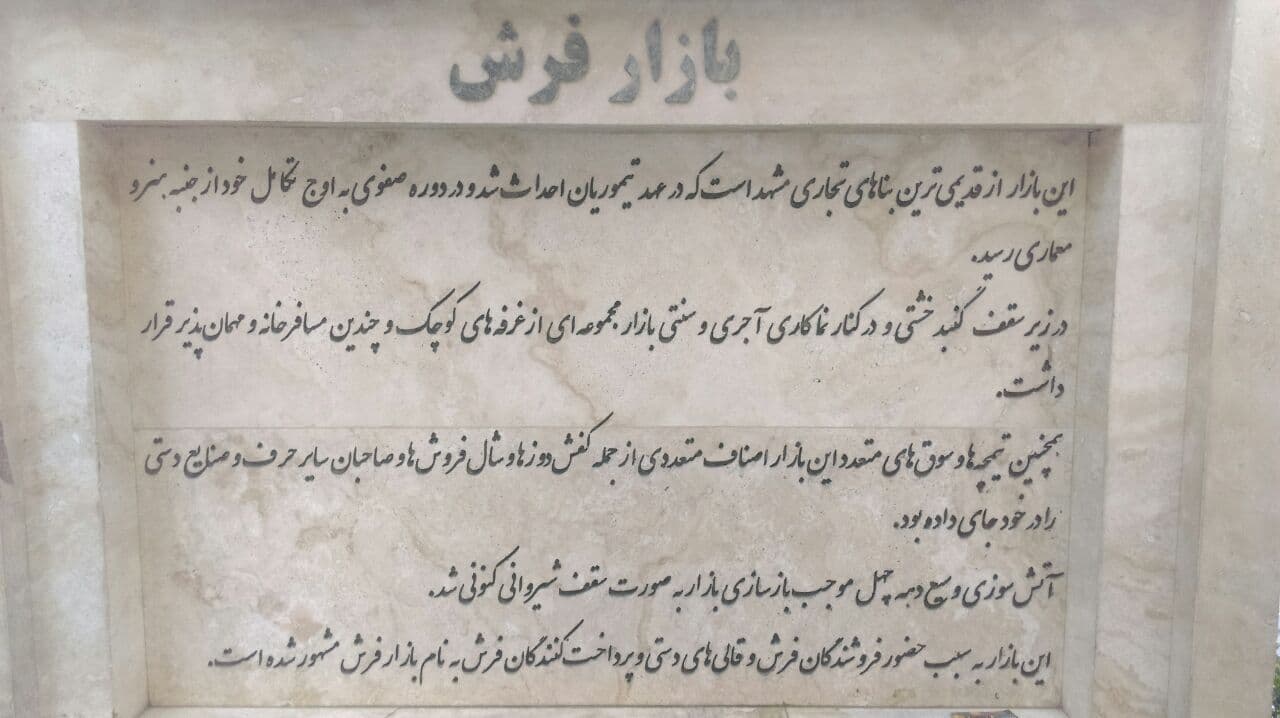 بازار فرش
این بازار از قدیمی ترین بناهای تجاری مشهد است که در عهد تیموریان احداث شد و در دوره صفوی به اوج تکامل خود از جنبه هنر و
معماری رسید.
در زیر سقف گنبد خشتی و در کنار نماکاری آجری و سنتی بازار مجموعه ای از غرفه های کوچک و چندین مسافرخانه و مهمان پذیر قرار
داشت.
همچنین تیمچه ها و سوق های متعدد این بازار اصناف متعددی از جمله کفش دوزها و شال فروش ها و صاحبان سایر حرف و صنایع دستی
را در خود جای داده بود.
آتش سوزی وسیع دهه چهل موجب بازسازی بازار به صورت سقف شیروانی کنونی شد.
این بازار به سبب حضور فروشندگان فرش و قالی های دستی و پرداخت کنندگان فرش به نام بازار فرش مشهور شده است.